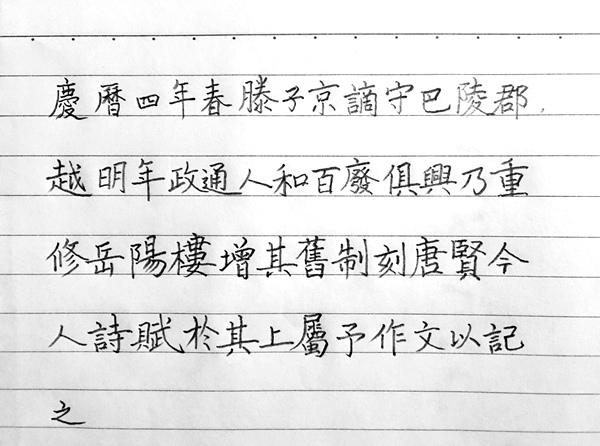 慶曆四年春滕子京謫守巴陵郡，
越明年政通人和百廢俱興乃重
修岳陽樓增其舊制刻唐賢今
人詩賦於其上屬予作文以記
之